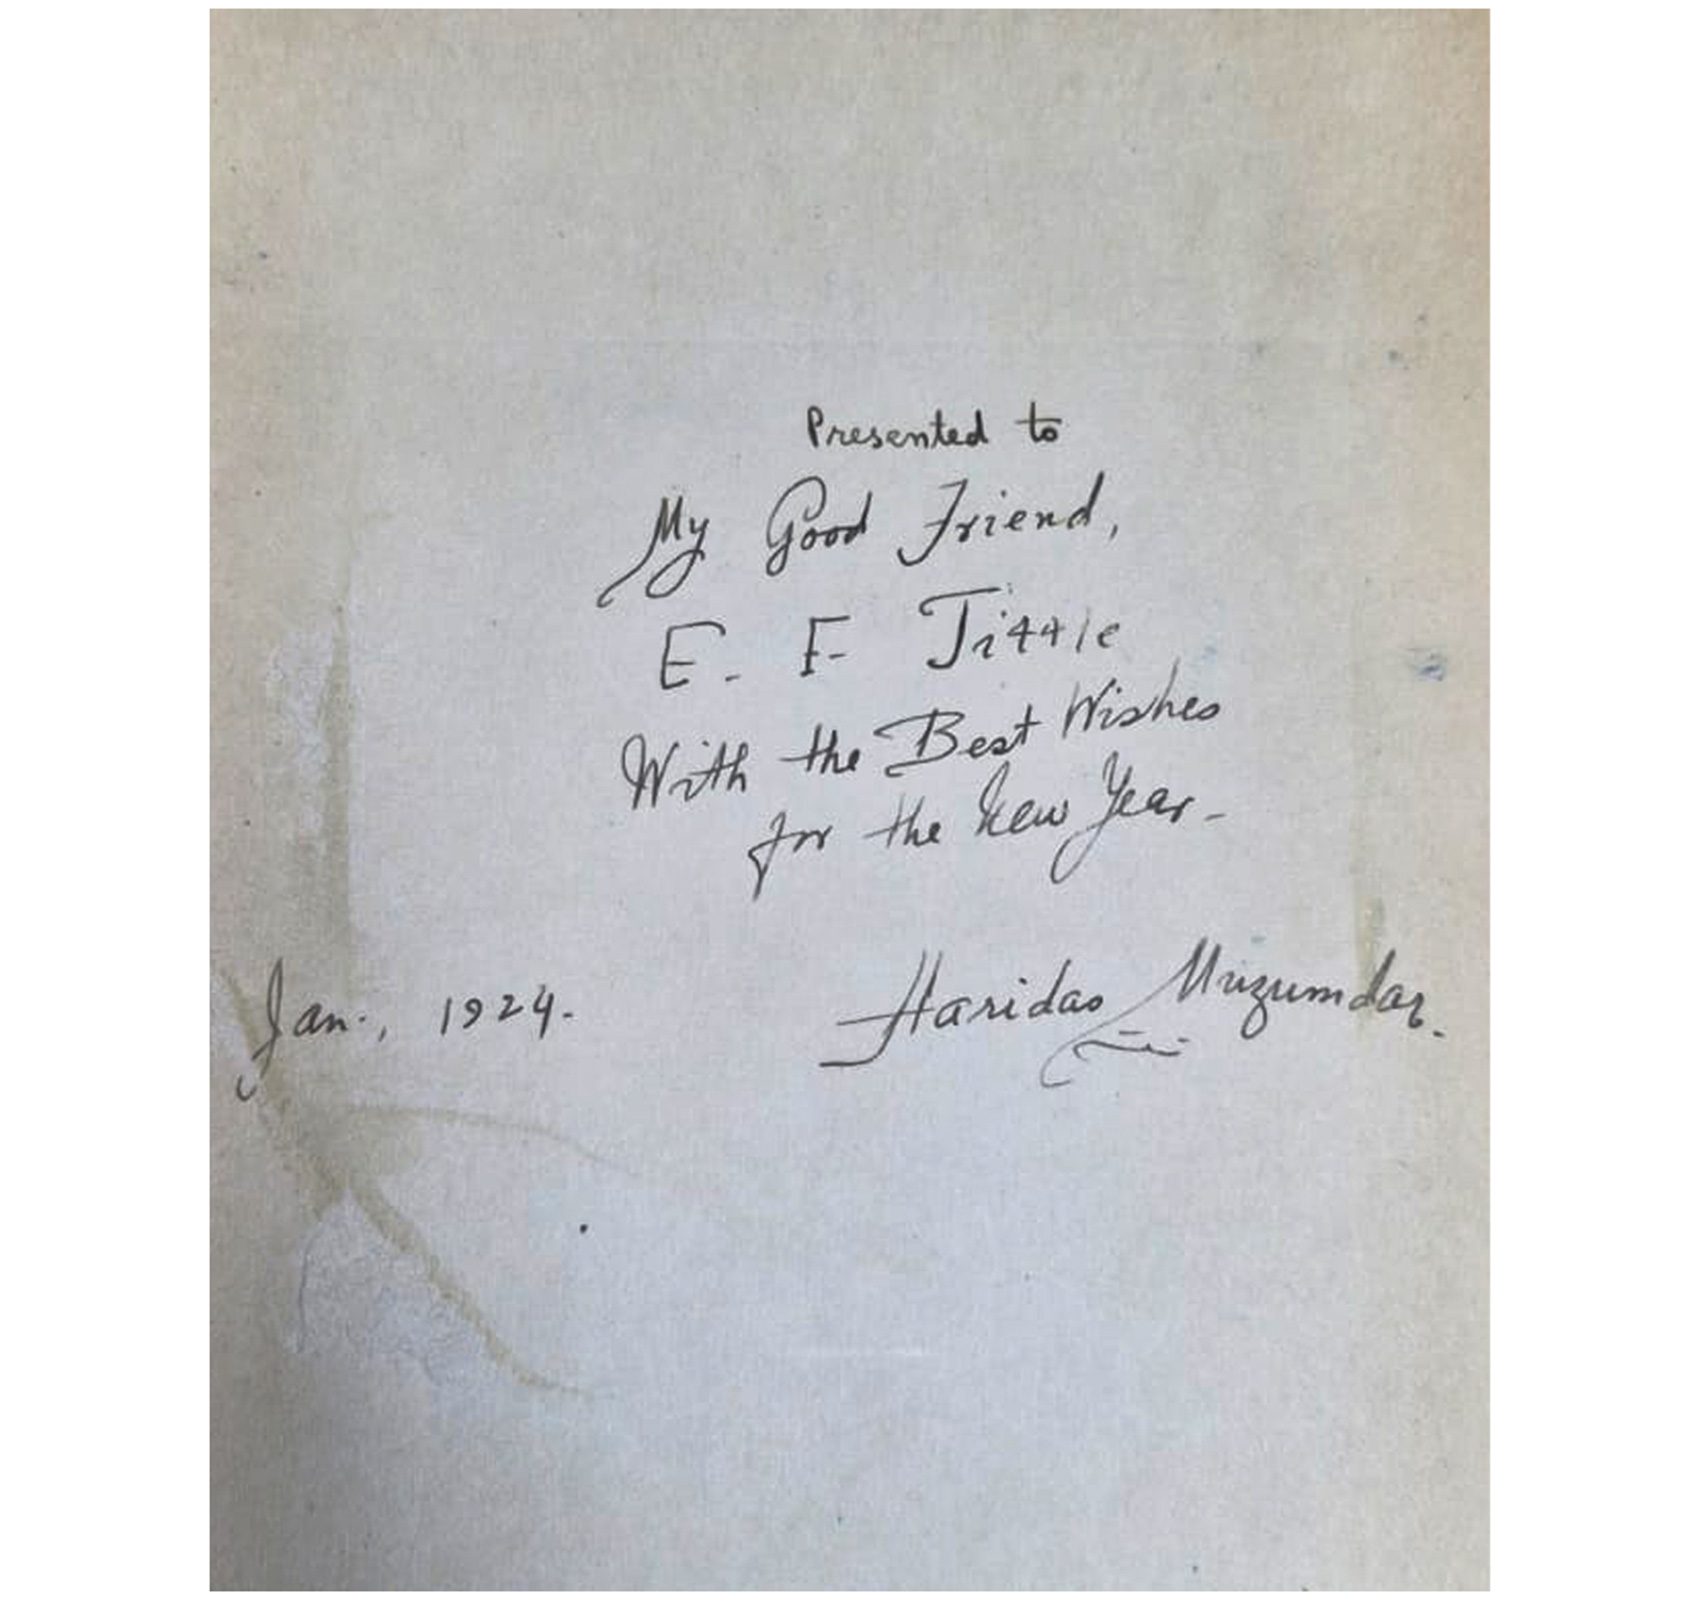 Presented to
My Good Friend,
E. F. Tittle
With the Best Wishes
for the New Year-
Jan., 1924.
Haridas Muzumdar.